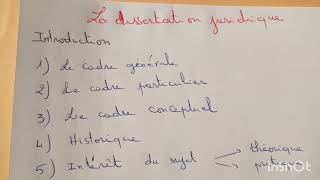 La dissertation juridique
Introduction
1) Le cadre générale
2) Le cadre particulier
3) Le cadre conceptuel
4) Historique
5) Intérêt du sujet
théorique
InShOt